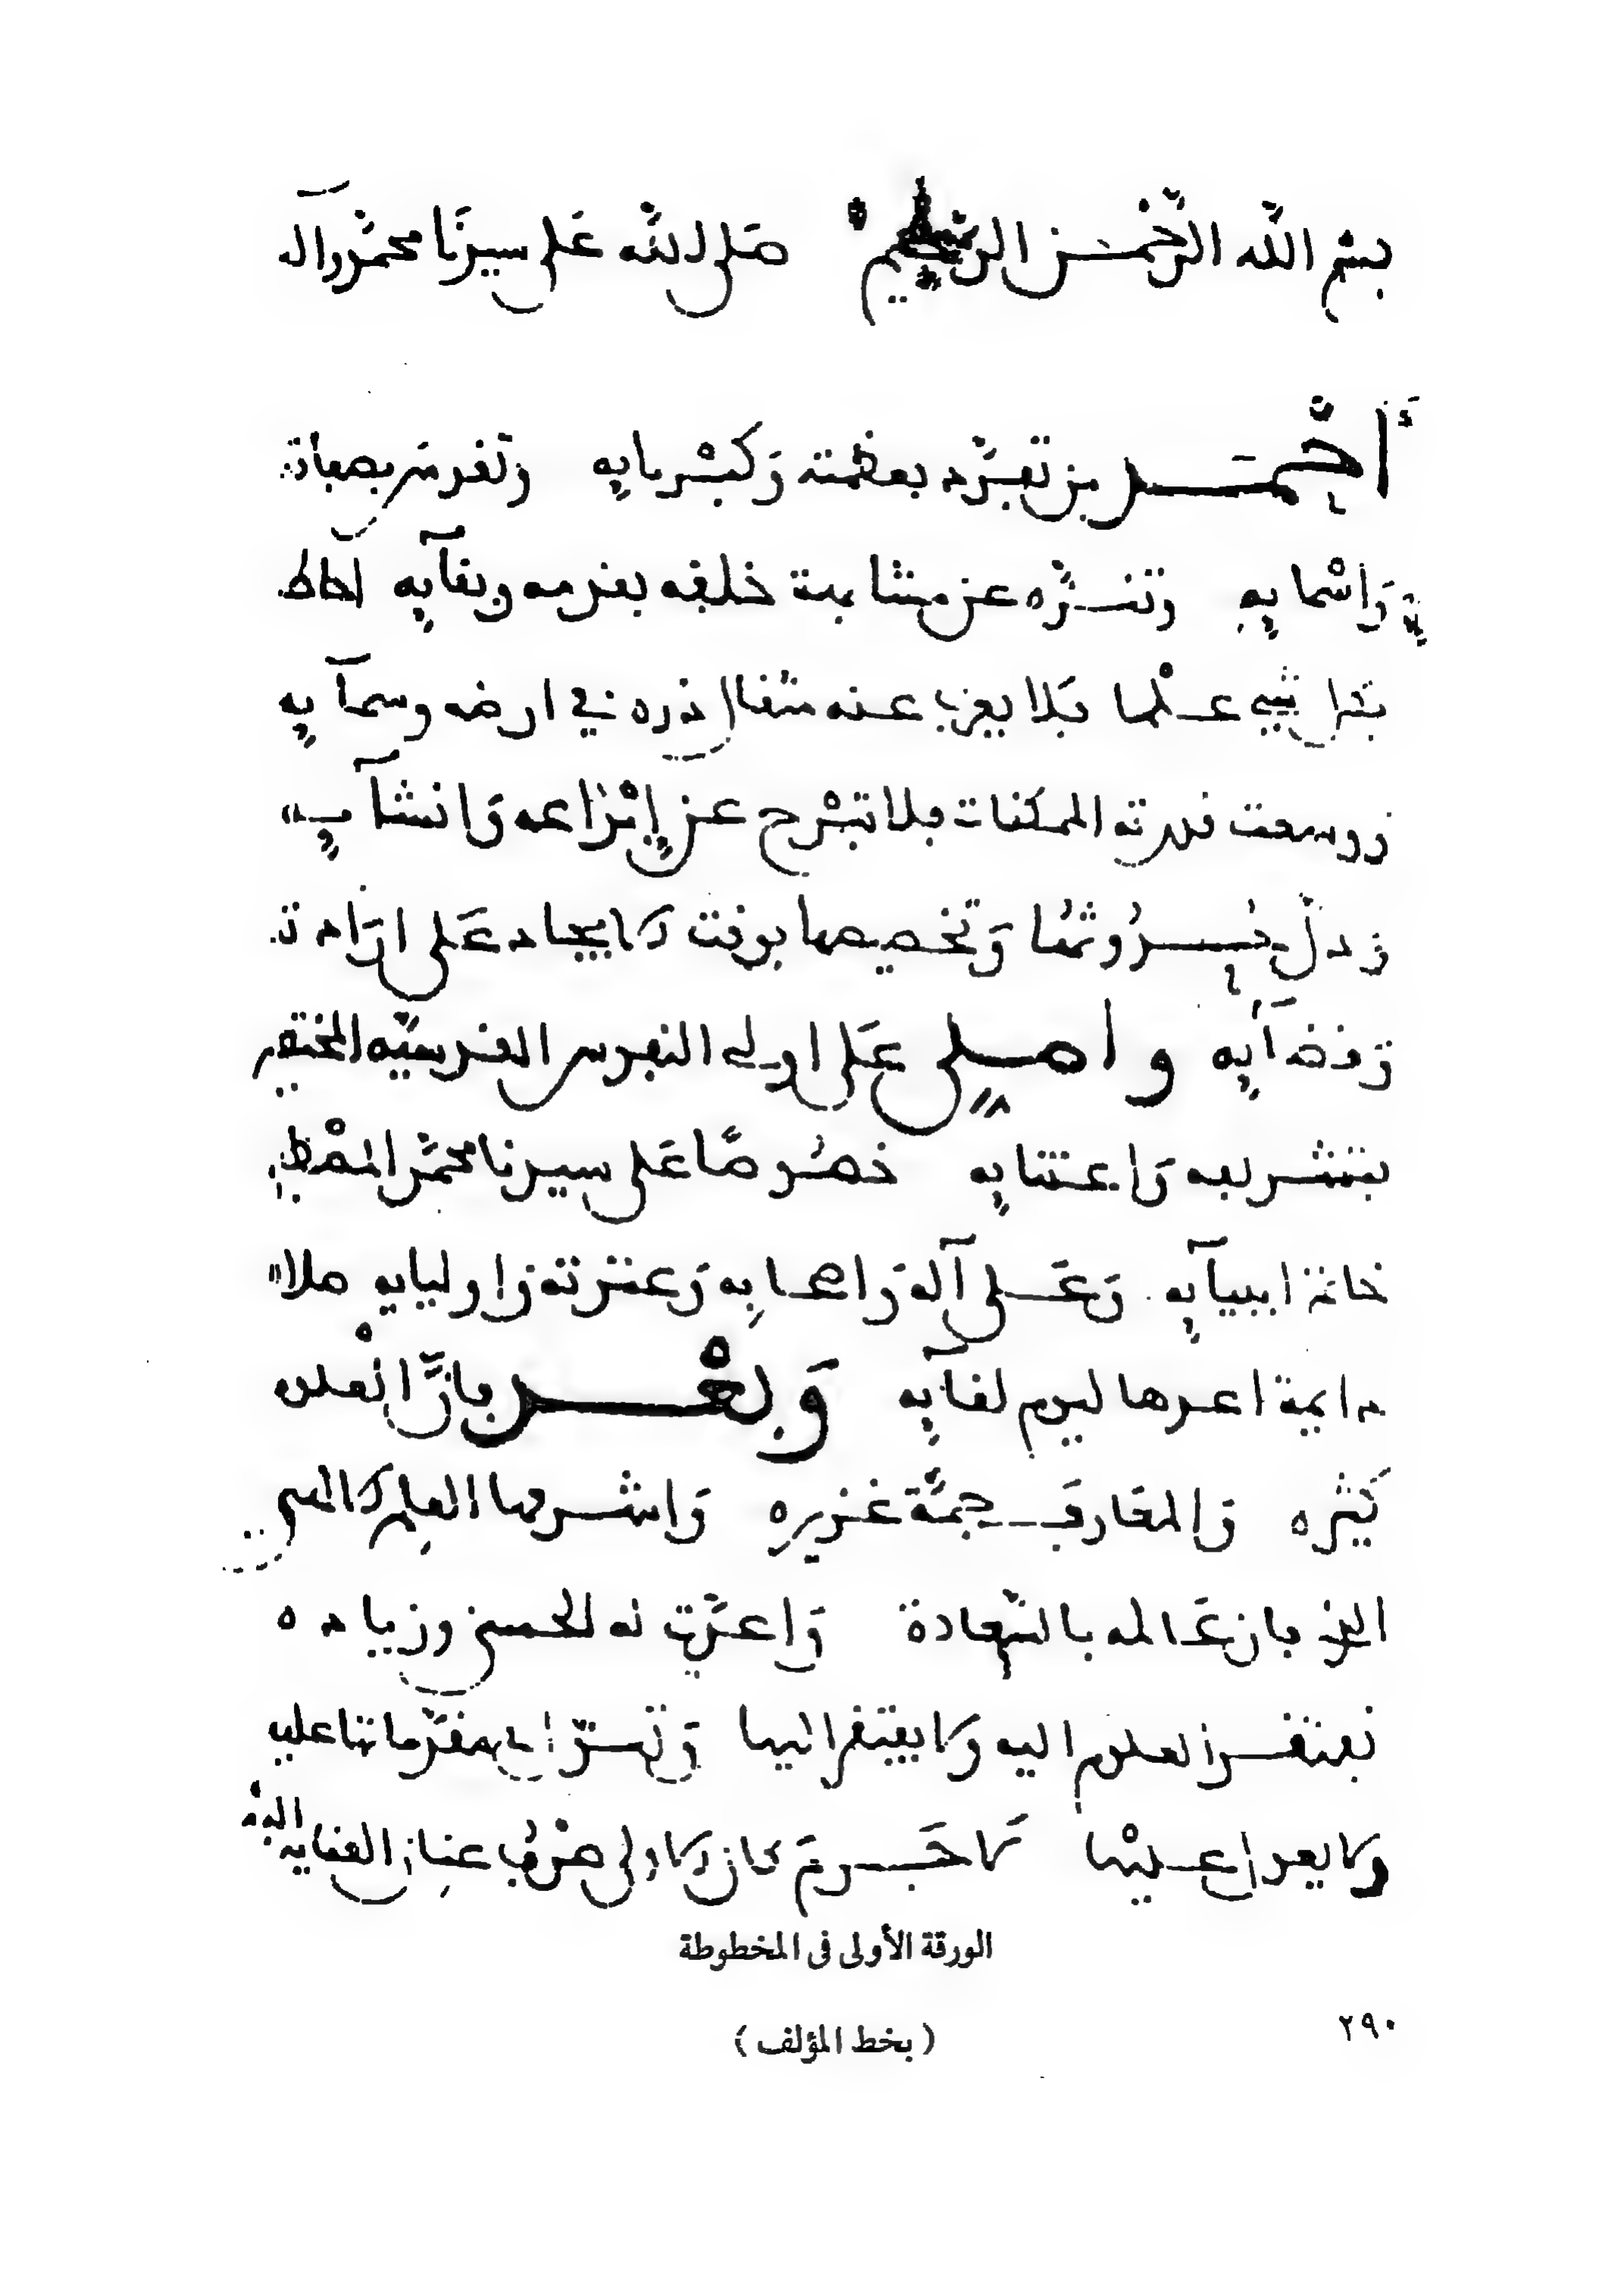 بسم الله الرحمن الرحيم صلى الله على سيدنا محمد وآله
أحمد من تفرد بعظمته وكبريايه وتقدس بصفاته
واسمايه وتنزه عن مشابهة خلقه بقدمه وبقآيه احاط
بكل شي علما فلا يعزب عنه مثقال ذره في ارضه وسمآيه
ووسعت قدرته الممكنات فلا تبرح عن إبداعه وانشآيه
ودل حدوثها وتخصيصها بوقت الايجاد على ارادته
وقضآيه واصلي على اولى النفوس القدسيه المختصه
بتشريفه واعتنايه خصوصا على سيدنا محمد المصطفى
خاتمة انبيايه وعلى آله واصحابه وعترته واوليايه صلاة
دايمة اعدها ليوم لقآيه وبعد فان العلوم
كثيره والمعارف جمة غزيره واشرفها العلم الالهي
الذي فاز عالمه بالسعادة واعدت له الحسنى وزياده
تفتقر العلوم اليه ولا يفتقر اليها وتستمد مقدماتها عليه
ولا يعول عليها لا جرم كان الاولى صرف عنان العنايه اليه
الورقة الأولى فى المخطوطة
(بخط المؤلف)
٢٩٠